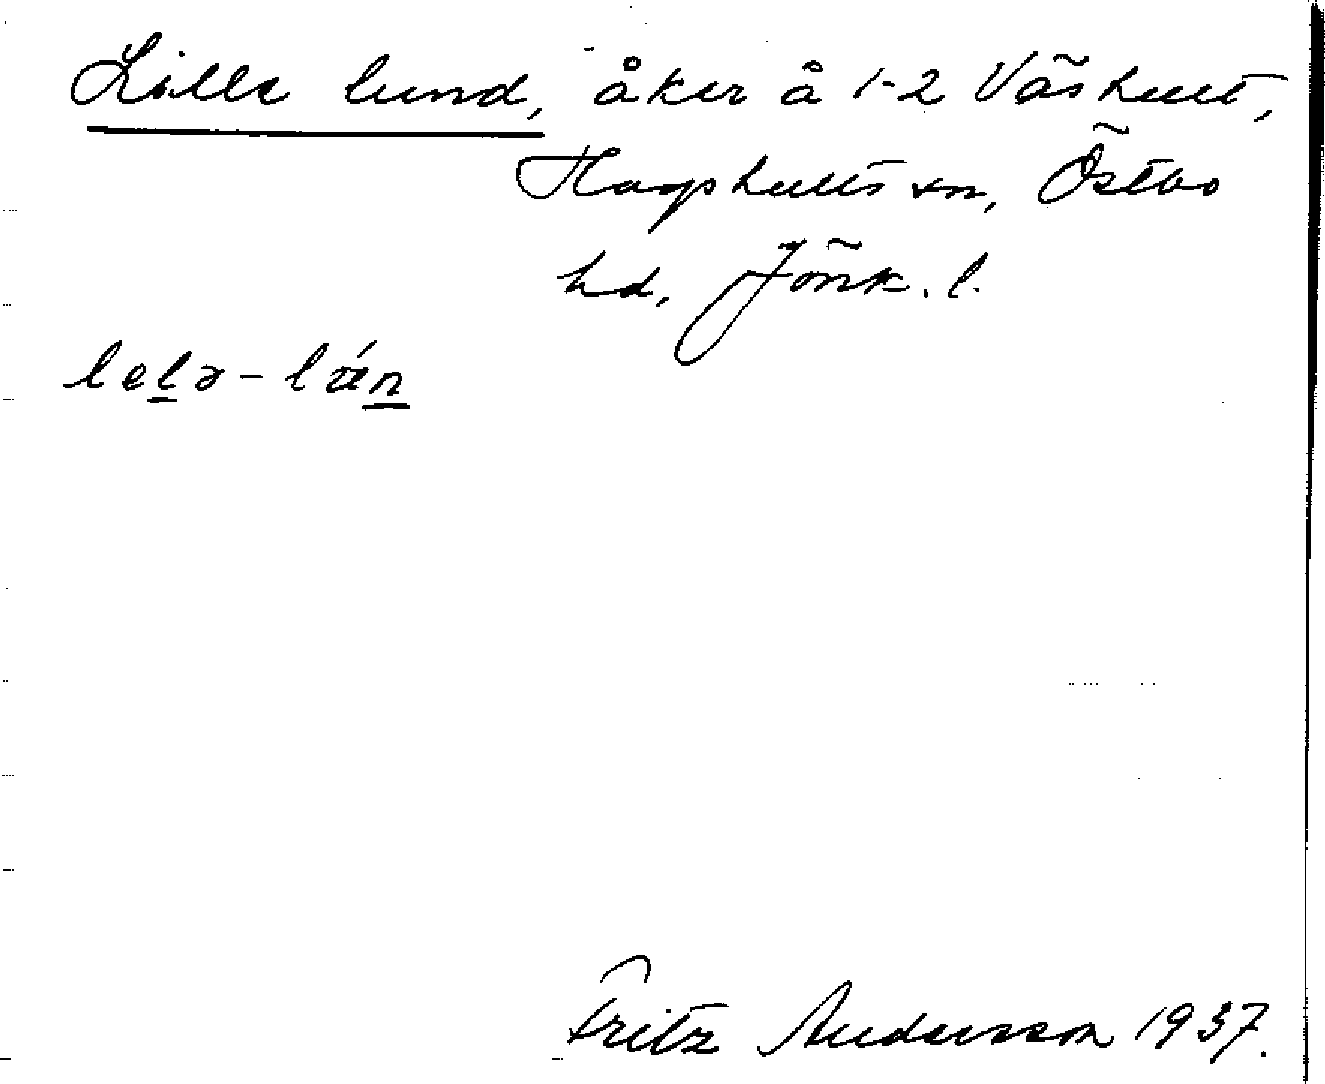 Lille lund, åker å 1-2 Väshult,
Hagshults sn, Östbo
hd, Jönk. l.
lelə-lán
Fritz Andersson 1937.